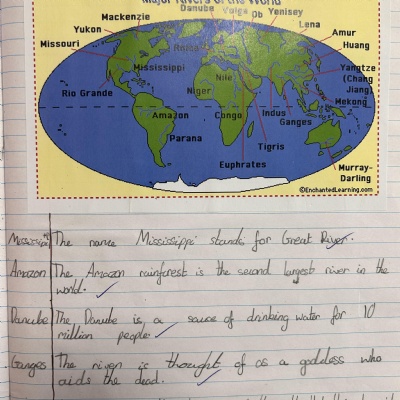 Major Rivers of the World
Danube Volga Ob Yenisey
Mackenzie Lena
Yukon Amur
Missouri Huang
Mississippi Yangtze
(Chang
Jiang)
Nile
Rio Grande Niger Mekong
Amazon Congo Indus
Ganges
Parana Tigris
Euphrates Murray-
Darling
©EnchantedLearning.com
Mississippi The name Mississippi stands for Great River.
Amazon The Amazon rainforest is the second largest river in the
world.
Danube The Danube is a source of drinking water for 10
million people.
Ganges The river is thought of as a goddess who
aids the dead.